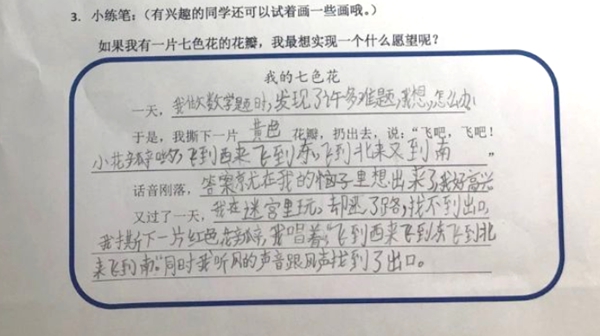 3. 小练笔：（有兴趣的同学还可以试着画一些画哦。）
如果我有一片七色花的花瓣，我最想实现一个什么愿望呢？
我的七色花
一天，我做数学题时，发现了许多难题，我想，怎么办
于是，我撕下一片 黄色 花瓣，扔出去，说：“飞吧，飞吧！
小花瓣哟，飞到西来飞到东，飞到北来又到南 ”
话音刚落，答案就在我的脑子里想出来了，我好高兴
又过了一天，我在迷宫里玩，却迷了路，找不到出口，
我撕下一片红色花瓣，我唱着：“飞到西来飞到东飞到北
来飞到南。”同时我听风的声音跟风声找到了出口。